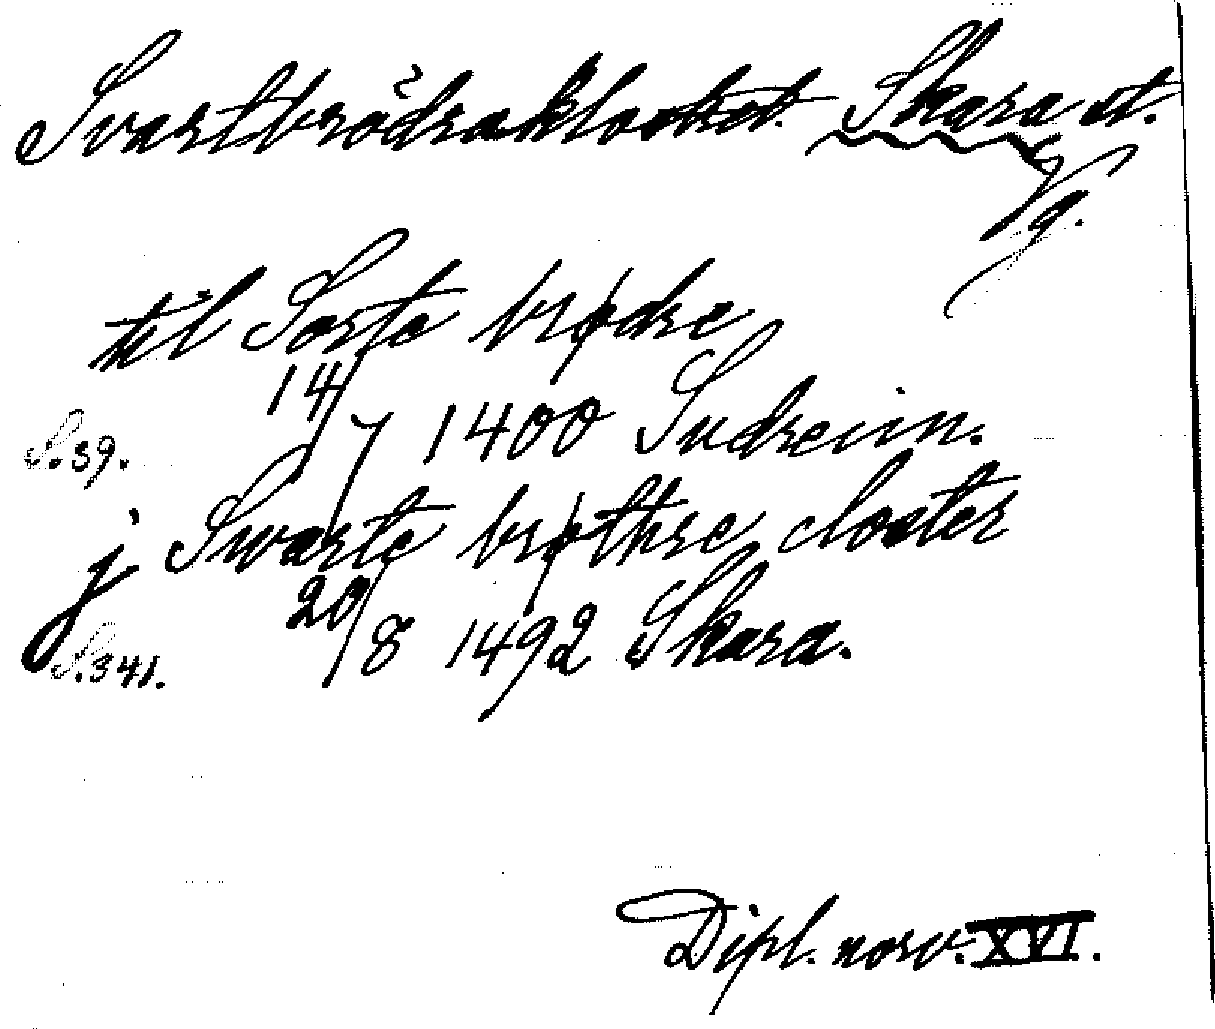 Svartbrödraklostret. Skara st.
Vg.
til Sorte brødre
S. 39. 14/7 1400 Sudreim.
j Swarte brøthre closter
S. 341. 20/8 1492 Skara.
Dipl. norv. XVI.